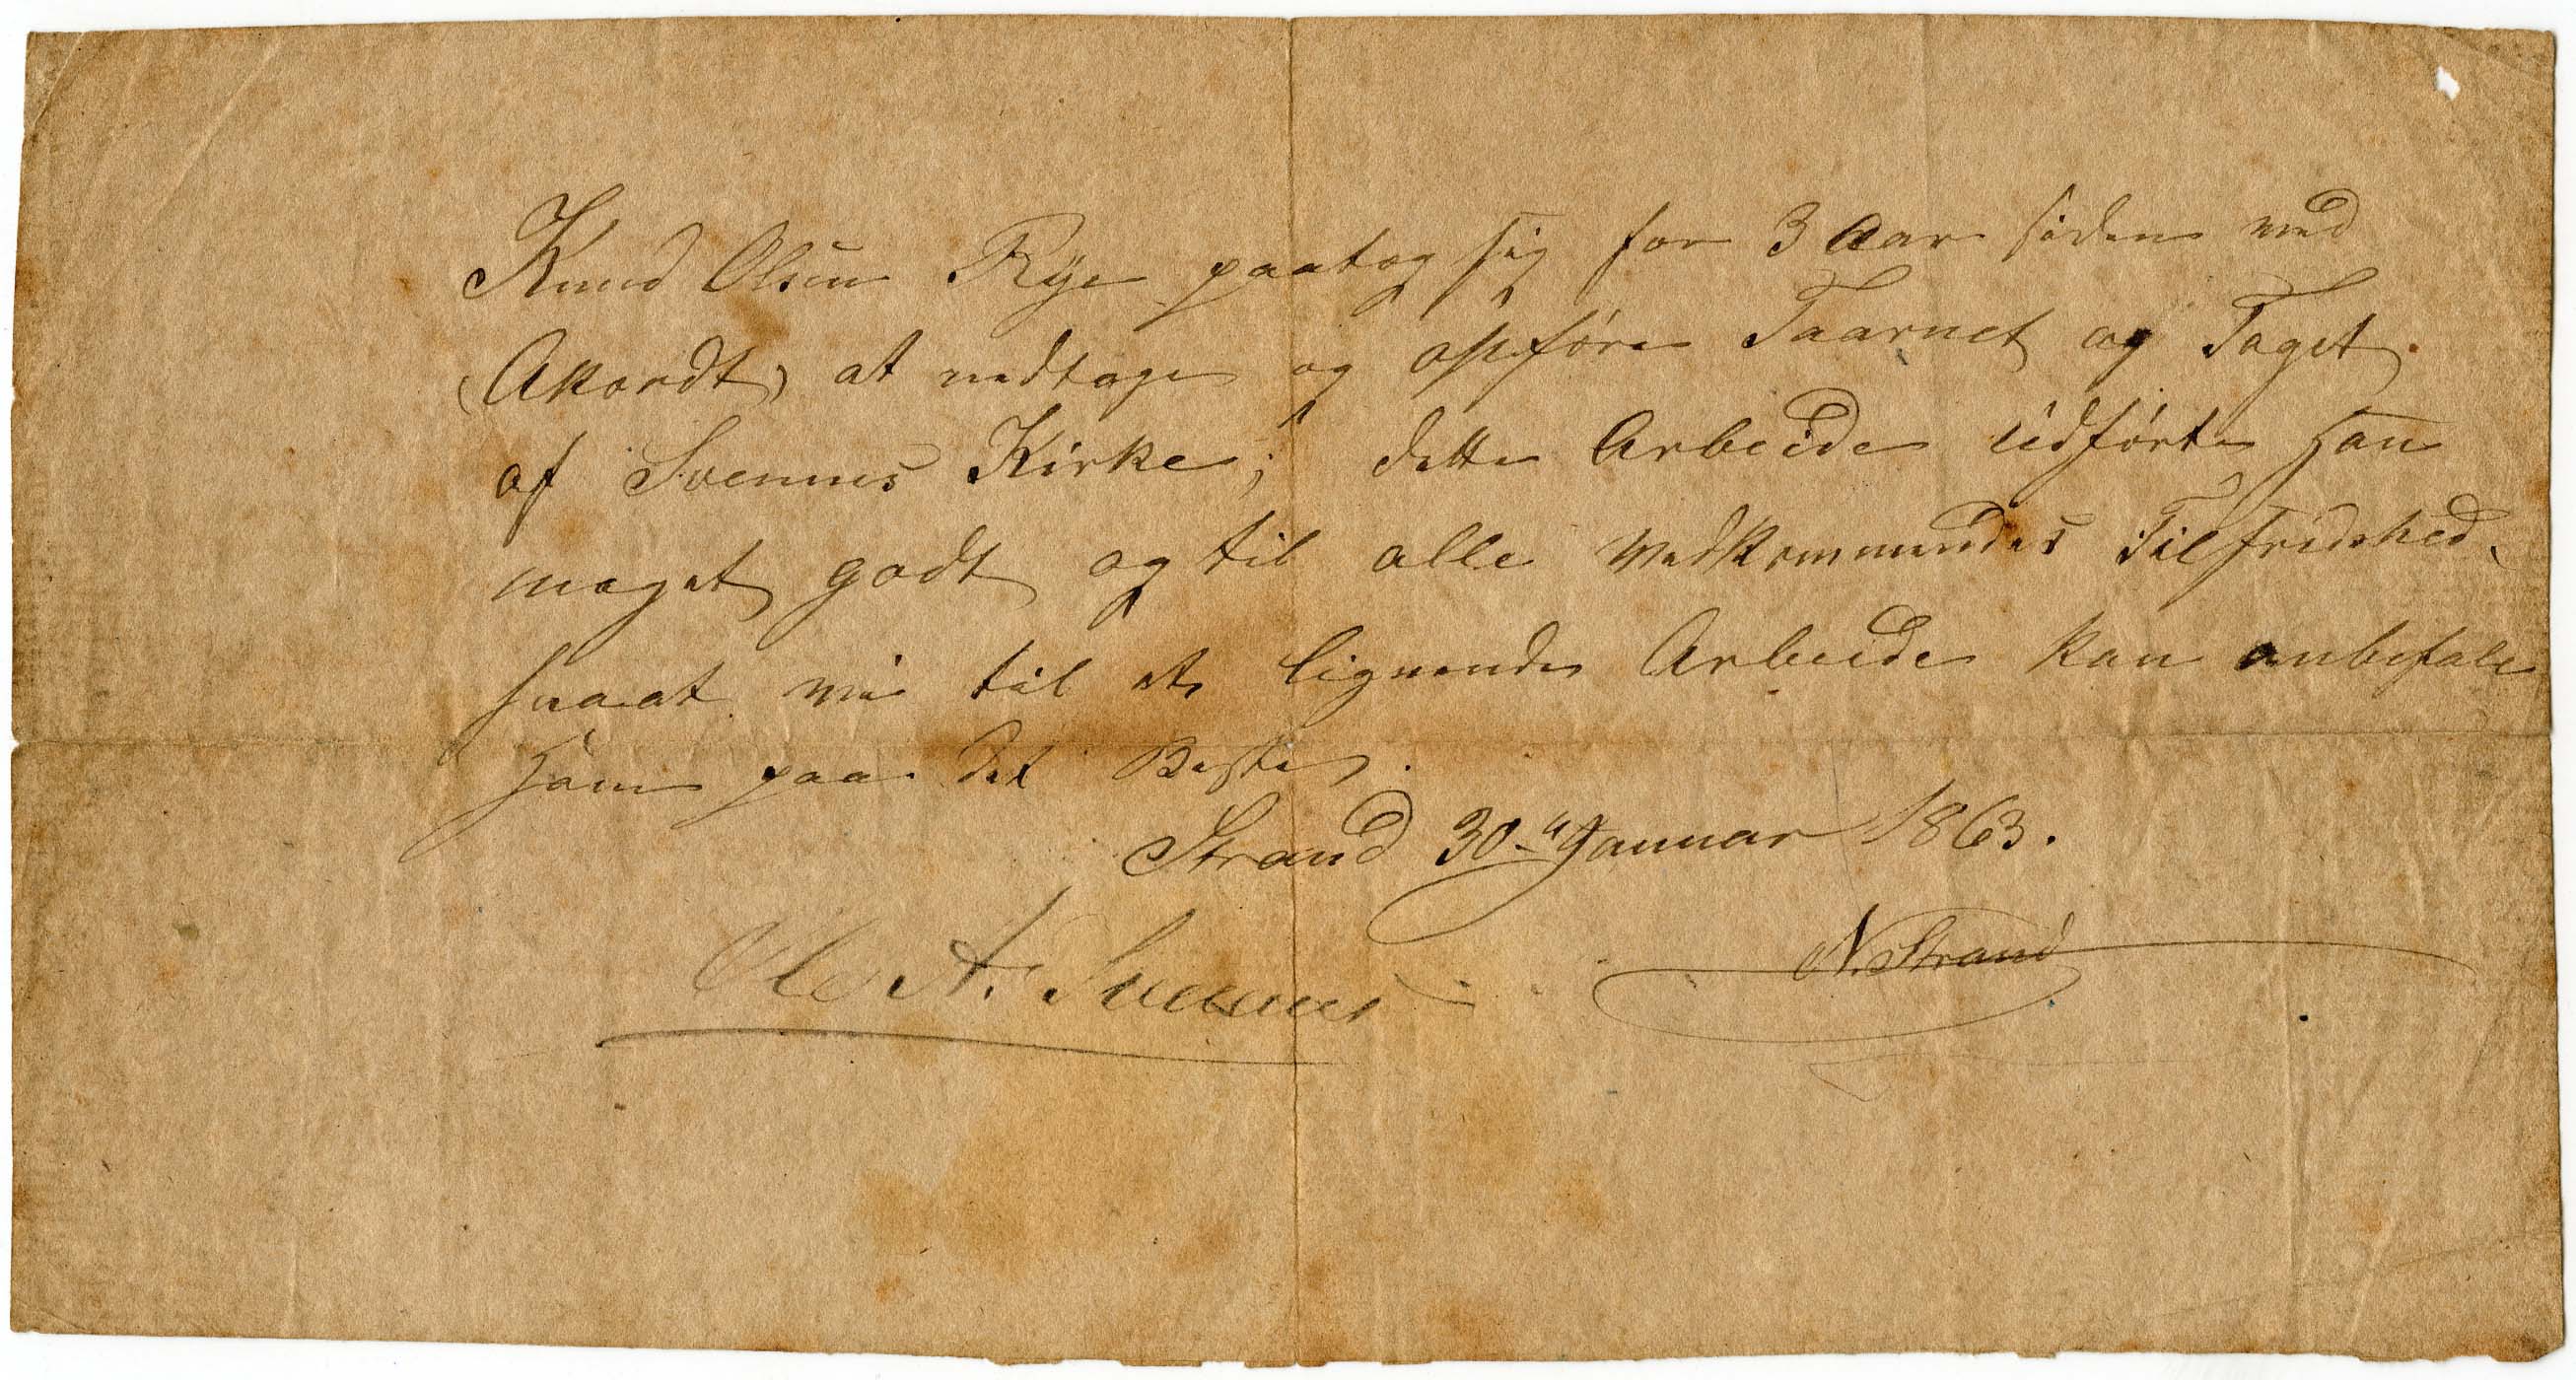 Knud Olsen Rye paatog sig for 3 Aar siden ved
(Akordt) at nedtage og opføre Taarnet og Taget
af Svennes Kirke; dette Arbeide udførte han
meget godt og til alle Vedkommendes Tilfredshed,
saaat vi til et lignende Arbeide kan anbefale
ham paa det Beste.
Strand 30. Januar 1863.
Ole A. Svennes N. Strand